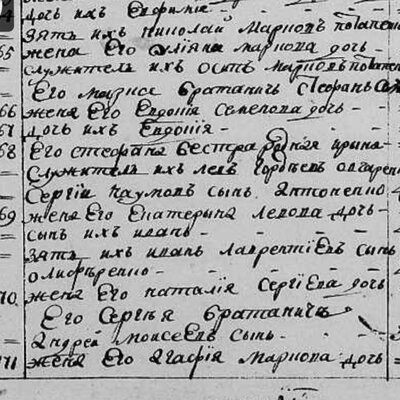 4 дочь ихъ Евфимiя -
зять ихъ Николай Марковъ потапенко
65 жена Его Улiяна Маркова дочь -
служитель ихъ Осипъ Марковъ потапенко
Его Моисея братаничь Стефанъ
66 жена Его Евдокiя Семенова дочь -
67 дочь ихъ Евдокiя -
68 Его стефана Сестра родная Ирина -
служитель ихъ левъ Гордѣевъ
Сергiй Наумовъ сынъ Антоненко
69 жена Его Екатерына левова дочь -
сынъ ихъ иванъ -
зять ихъ иванъ лаврентiевъ сынъ
олифѣренко -
70 жена Его наталiя Сергiева дочь
Его Сергѣя братаничь
Андрей Моисеевъ сынъ -
71 жена Его Агафiя Маркова дочь -